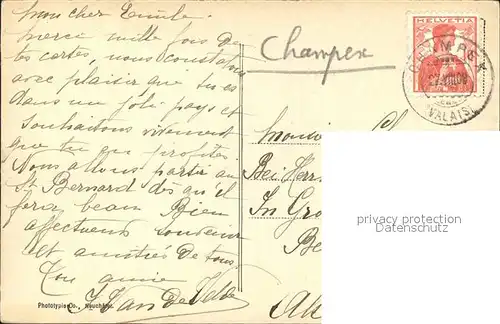 Mon cher Emile.
Merci mille fois de
tes cartes, nous constatons
avec plaisir que tu es
dans un joli pays et
souhaitons vivement
que tu en profites.
Nous allons partir au
St. Bernard dès qu'il
fera beau Bien
affectueux souvenir
et amitiés de tous
Ton amie
J. Van de Velde
Phototypie Co., Neuchâtel
Champex
HELVETIA
CHAMPEX
(VALAIS)
Monsieur
Bei Herr
In Gro
privacy protection
Datenschutz